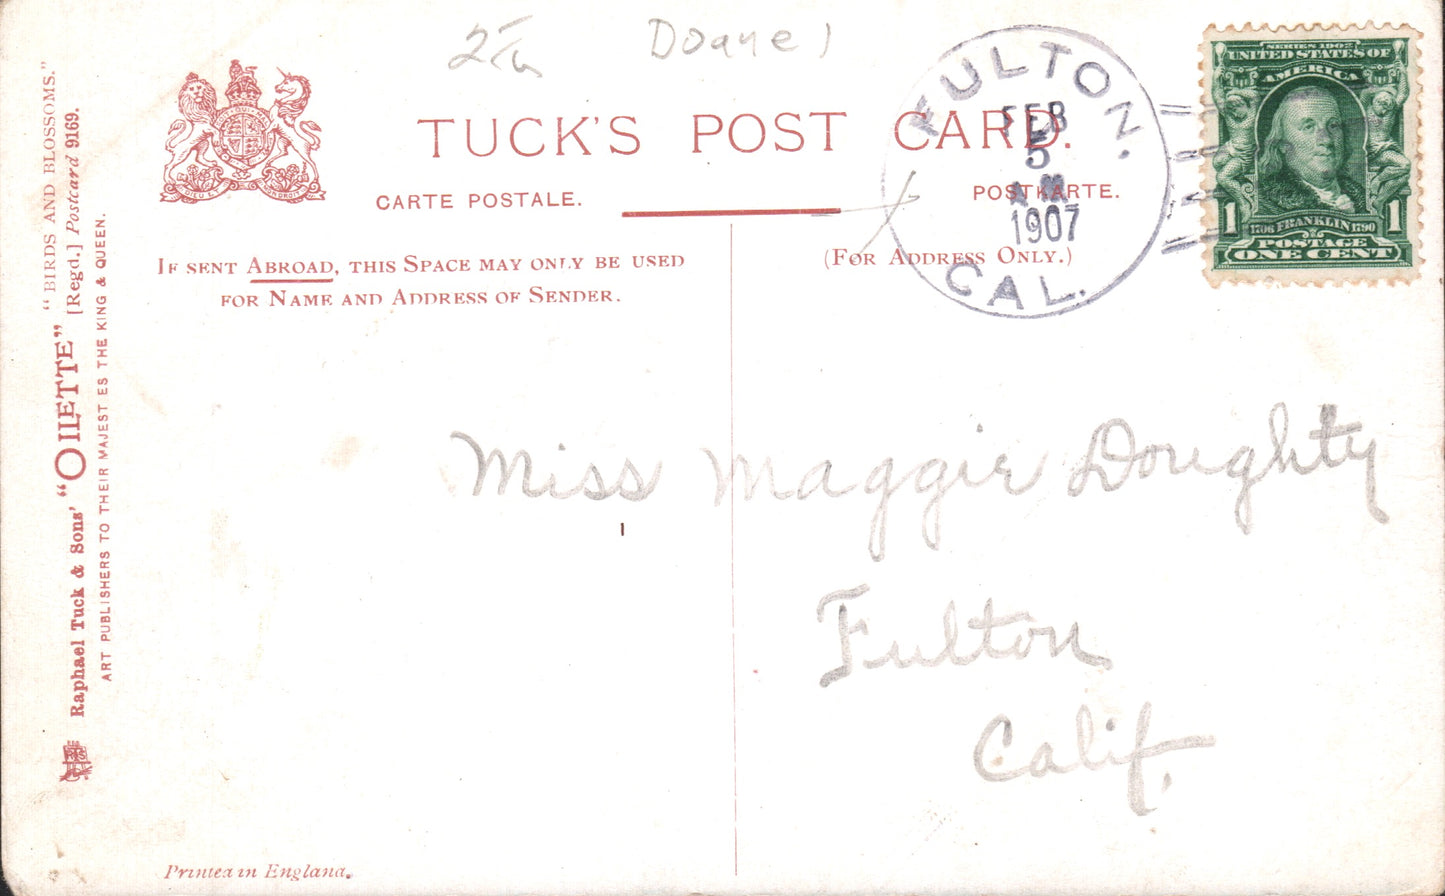 Doane 1
TUCK'S POST CARD.
CARTE POSTALE.
POSTKARTE.
IF SENT ABROAD, THIS SPACE MAY ONLY BE USED
FOR NAME AND ADDRESS OF SENDER.
(FOR ADDRESS ONLY.)
FULTON.
FEB
5
AM
1907
CAL.
SERIES 1902
UNITED STATES OF
AMERICA
1 1706 FRANKLIN 1790 1
POSTAGE
ONE CENT
"BIRDS AND BLOSSOMS."
Raphael Tuck & Sons' "OILETTE" [Regd.] Postcard 9169.
ART PUBLISHERS TO THEIR MAJESTIES THE KING & QUEEN.
Miss Maggie Doughty
Fulton
Calif.
Printed in England.